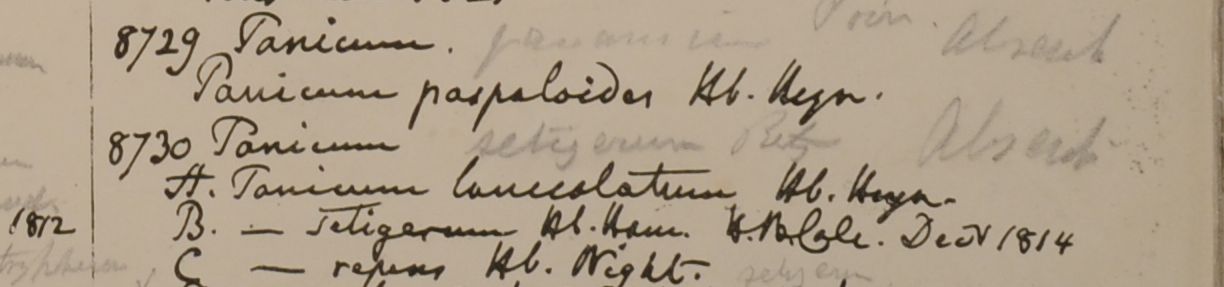 8729 Panicum. Poir. Absent
Panicum paspaloides Hb. Heyn.
8730 Panicum setigerum Retz Absent
A. Panicum lanceolatum Hb. Heyn.
1812 B. — setigerum Hb. Ham. H.B.Calc. Decr 1814
C — repens Hb. Wight. setigerum